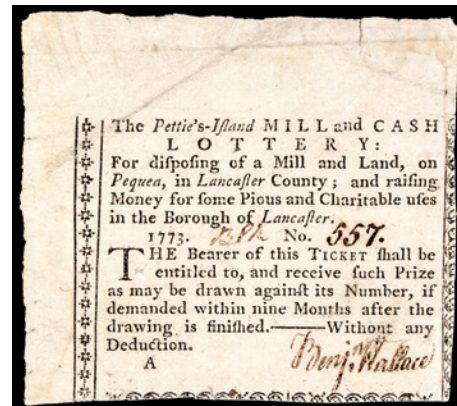 The Pettie's-Iſland MILL and CASH
LOTTERY:
For diſpoſing of a Mill and Land, on
Pequea, in Lancaſter County; and raiſing
Money for ſome Pious and Charitable uſes
in the Borough of Lancaſter.
1773. No. 557.
THE Bearer of this TICKET ſhall be
entitled to, and receive ſuch Prize
as may be drawn againſt its Number, if
demanded within nine Months after the
drawing is finiſhed.——Without any
Deduction.
A Benjn Wallace